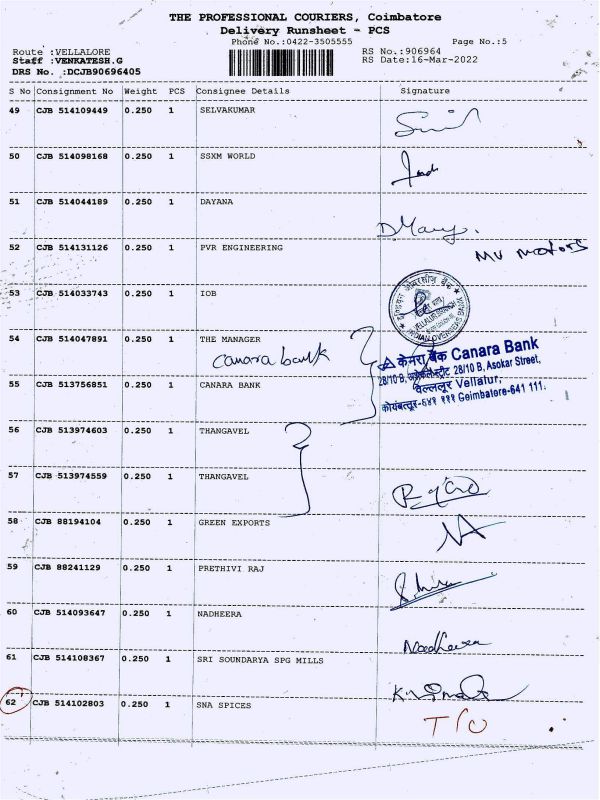 THE PROFESSIONAL COURIERS, Coimbatore
Delivery Runsheet - PCS
Phone No.:0422-3505555
Page No.:5
Route :VELLALORE
RS No.:906964
Staff :VENKATESH.G
RS Date:16-Mar-2022
DRS No. :DCJB90696405
S No Consignment No Weight PCS Consignee Details Signature
49 CJB 514109449 0.250 1 SELVAKUMAR
50 CJB 514098168 0.250 1 SSXM WORLD
51 CJB 514044189 0.250 1 DAYANA
D Mary.
52 CJB 514131126 0.250 1 PVR ENGINEERING
MV motors
53 CJB 514033743 0.250 1 IOB
VELLALUR BRANCH
INDIAN OVERSEAS BANK
54 CJB 514047891 0.250 1 THE MANAGER
canara bank
केनरा बैंक Canara Bank
28/10 B, Asokar Street,
वेल्ललूर Vellalur,
कोयंबत्तूर-६४१ १११ Coimbatore-641 111.
55 CJB 513756851 0.250 1 CANARA BANK
56 CJB 513974603 0.250 1 THANGAVEL
57 CJB 513974559 0.250 1 THANGAVEL
58 CJB 88194104 0.250 1 GREEN EXPORTS
59 CJB 88241129 0.250 1 PRETHIVI RAJ
60 CJB 514093647 0.250 1 NADHEERA
Nadheera
61 CJB 514108367 0.250 1 SRI SOUNDARYA SPG MILLS
62 CJB 514102803 0.250 1 SNA SPICES
T/O